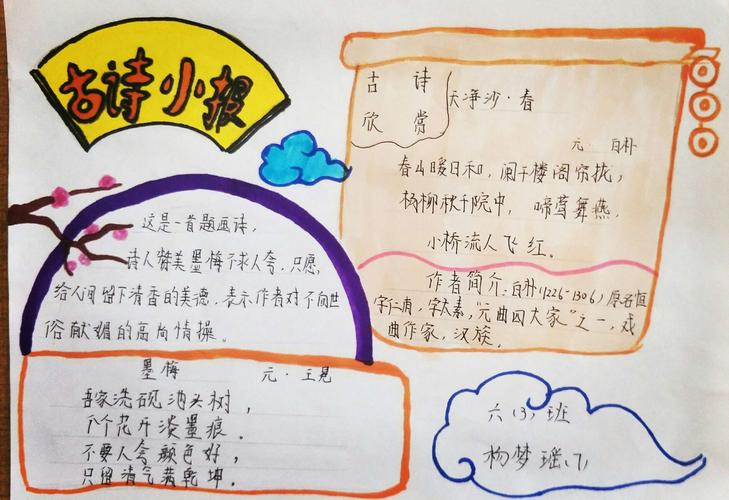 古诗小报
古诗
欣赏
天净沙·春
元·白朴
春山暖日和，阑干楼阁帘拢，
杨柳秋千院中，啼莺舞燕，
小桥流人飞红。
作者简介：白朴(1226-1306)原名恒
字仁甫，字太素，"元曲四大家"之一，戏
曲作家，汉族。
这是一首题画诗，
诗人赞美墨梅不求人夸，只愿
给人间留下清香的美德，表示作者对不向世
俗献媚的高尚情操。
墨梅 元·王冕
吾家洗砚池头树，
个个花开淡墨痕。
不要人夸颜色好，
只留清气满乾坤。
六(3)班
杨梦瑶(7)